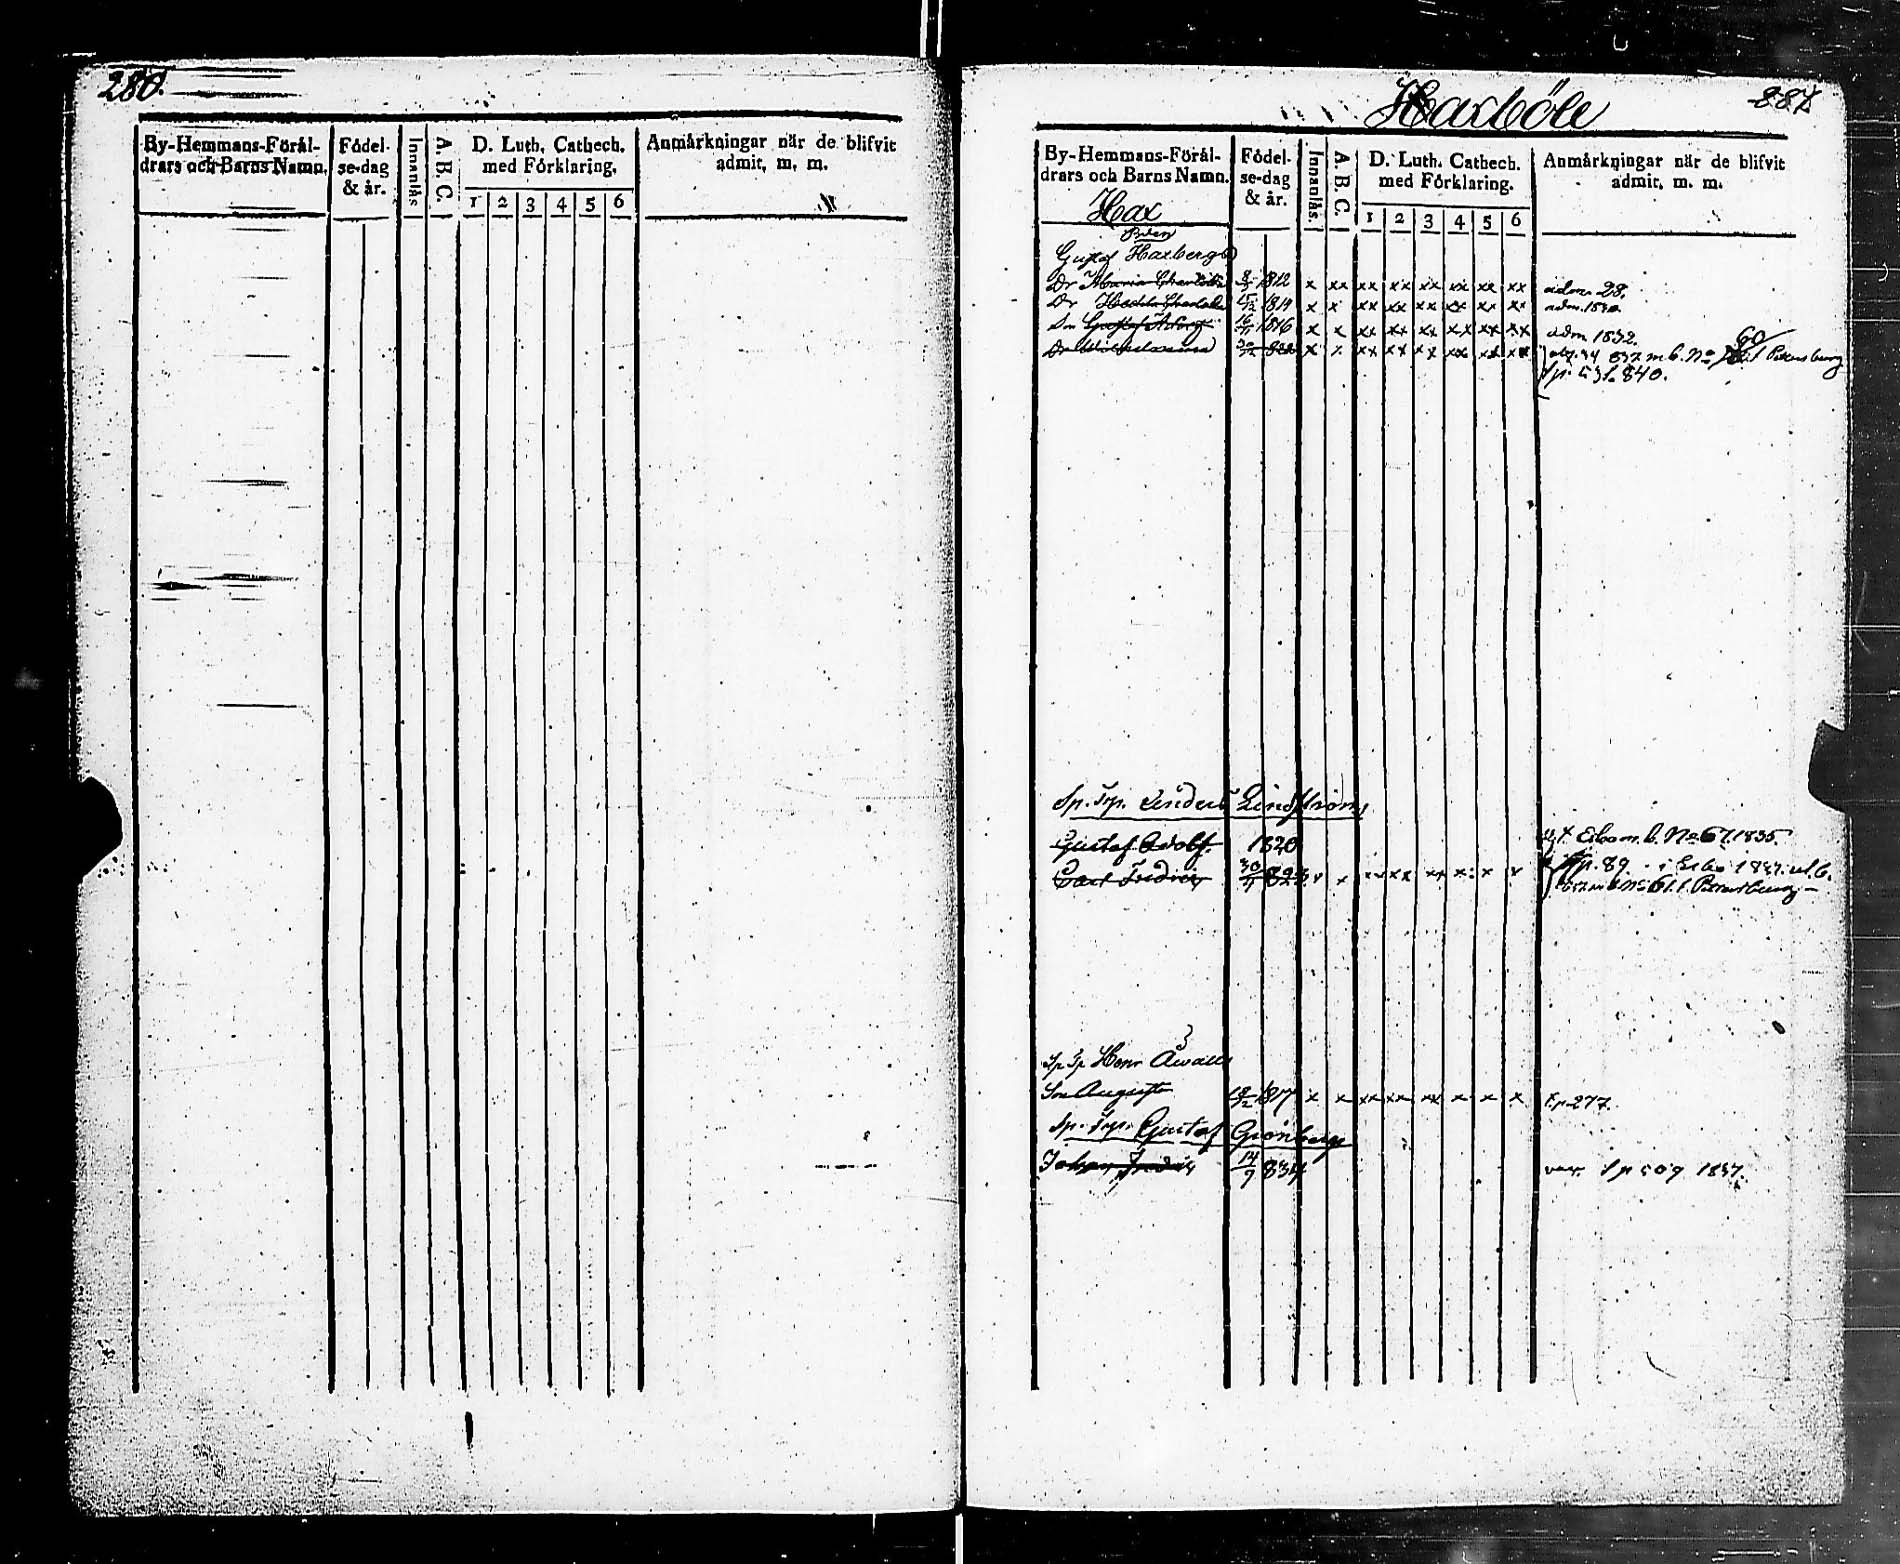 280.
By-Hemmans-Föräl-
drars och Barns Namn.
Födel-
se-dag
& år.
Innanläs
A. B. C.
D. Luth. Cathech.
med Förklaring.
1 2 3 4 5 6
Anmärkningar när de blifvit
admit, m. m.
Haxböle
287
By-Hemmans-Föräl-
drars och Barns Namn.
Födel-
se-dag
& år.
Innanläs.
A. B. C.
D. Luth. Cathech.
med Förklaring.
1 2 3 4 5 6
Anmärkningar när de blifvit
admit, m. m.
Hax
Gustaf Haxbergs
Dr Maria Charlotta 1812 x xx xx xx xx xx xx xx adm. 28.
Dr Hedda Charlotta 1814 x x xx xx xx xx xx xx adm. 1830
Son Gustaf Adolf 16/11 1816 x x xx xx xx xx xx xx adm 1832.
Dr Wilhelmina x x xx xx xx xx xx xx 837 m. b. No 60 St Petersburg
840.
Sp. Trp. Anders Lindström
Gustaf Adolf. 1820 Esbo m. b. No 67. 1835
Carl Fredric 30/11 823 p. 89 i Esbo
Petersburg
Sp Tp Henr Åwall
Son August 1817 x x xx xx xx x x x p 277.
Sp. Trp. Gustaf Grönberg
Johan Fredric 14/9 834 1837.